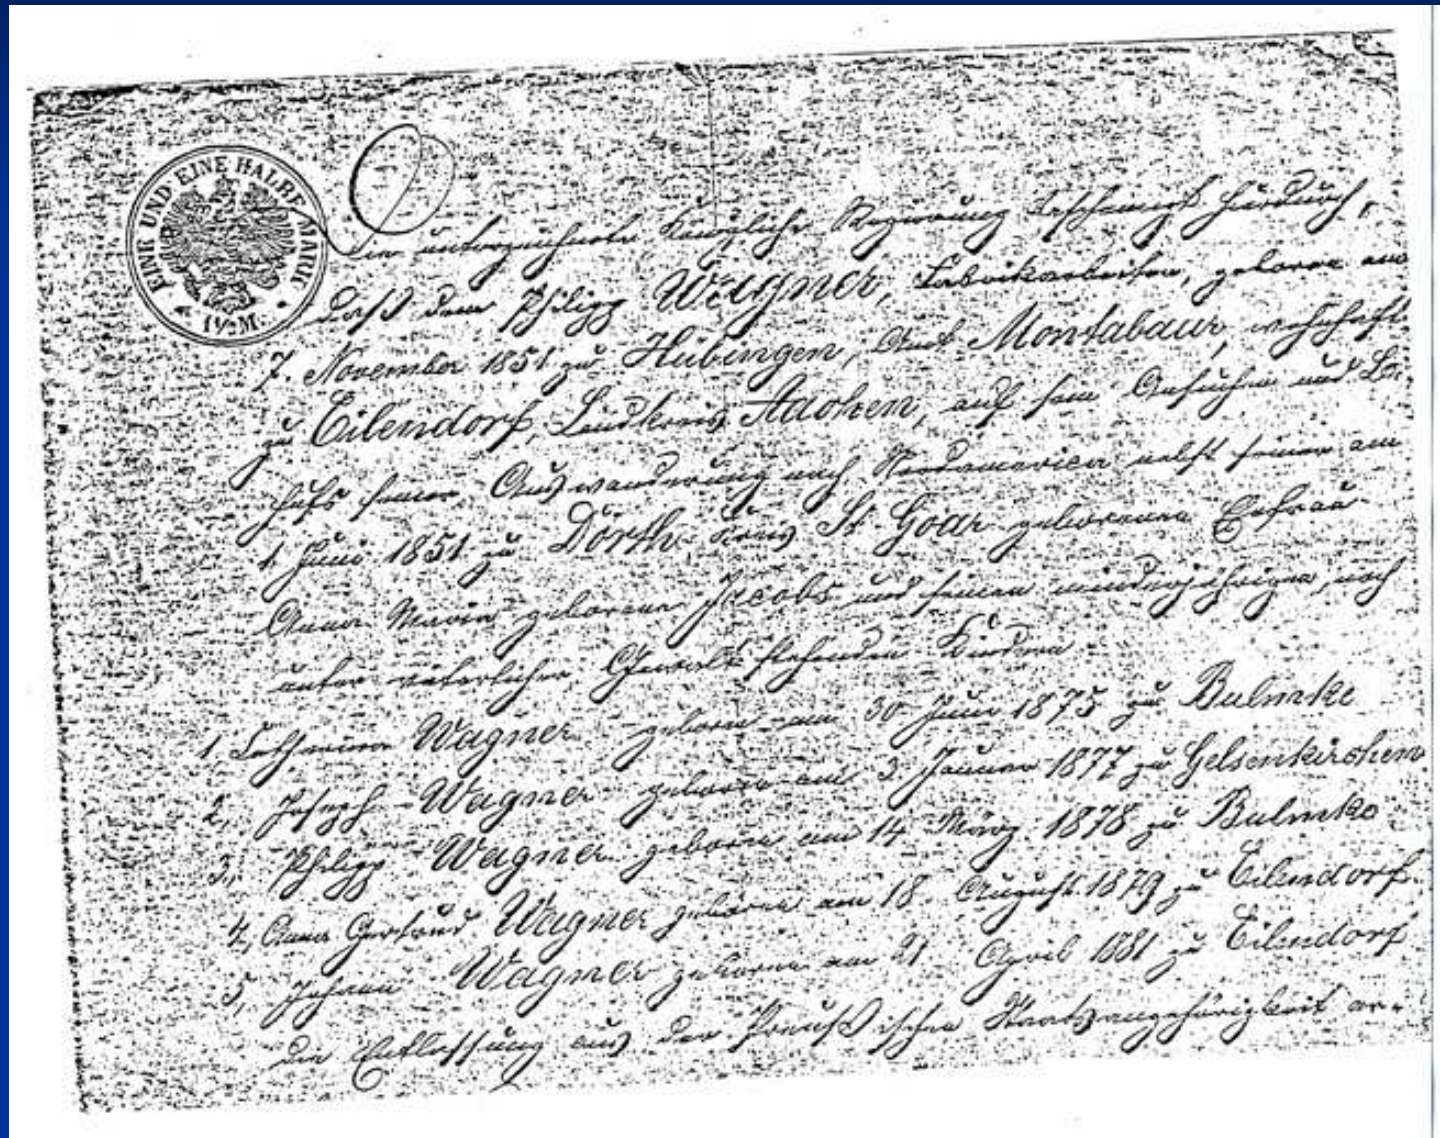 EINE UND EINE HALBE MARK
1½ M.
Die unterzeichnete Königliche Regierung bescheinigt hierdurch,
daß dem Philipp Wagner, Fabrikarbeiter, geboren am
7. November 1851 zu Hübingen, Amt Montabaur, wohnhaft
zu Eilendorf, Landkreis Aachen, auf sein Ansuchen und Be-
hufs seiner Auswanderung nach Nordamerica nebst seiner am
1. Juni 1851 zu Dörth, Kreis St. Goar geborenen Ehefrau
Anna Maria geborenen Jacobs und seinen minderjährigen, noch
unter väterlicher Gewalt stehenden Kindern
1, Catharina Wagner geboren am 30 Juni 1875 zu Bulmke
2, Joseph Wagner geboren am 3. Januar 1877 zu Gelsenkirchen
3, Philipp Wagner geboren am 14 März 1878 zu Bulmke
4, Anna Gertrud Wagner geboren am 18. August 1879 zu Eilendorf
5, Johann Wagner geboren am 21 April 1881 zu Eilendorf
die Entlassung aus der Preußischen Staatsangehörigkeit er-